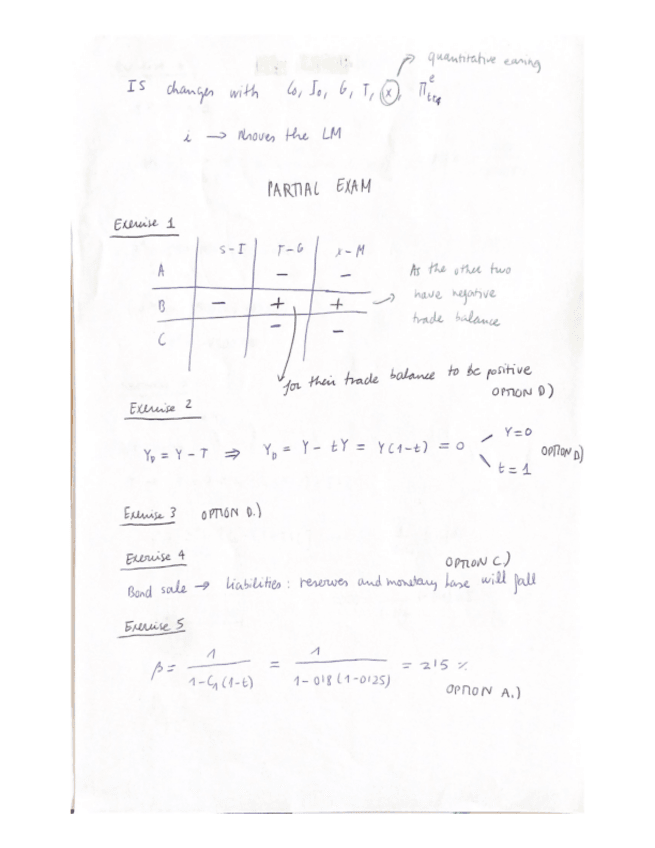 quantitative easing
IS changes with C₀, I₀, G, T, x, Π^e_{t+1}
i → moves the LM
PARTIAL EXAM
Exercise 1
S-I T-G X-M
A - -
B - + +
C - -
As the other two
have negative
trade balance
for their trade balance to be positive
OPTION D)
Exercise 2
Y_D = Y - T ⇒ Y_D = Y - tY = Y(1-t) = 0
Y=0
t=1
OPTION D)
Exercise 3 OPTION D.)
Exercise 4
OPTION C)
Bond sale → liabilities: reserves and monetary base will fall
Exercise 5
β = 1/(1-C₁(1-t)) = 1/(1-0'8(1-0'25)) = 2'5 %
OPTION A.)